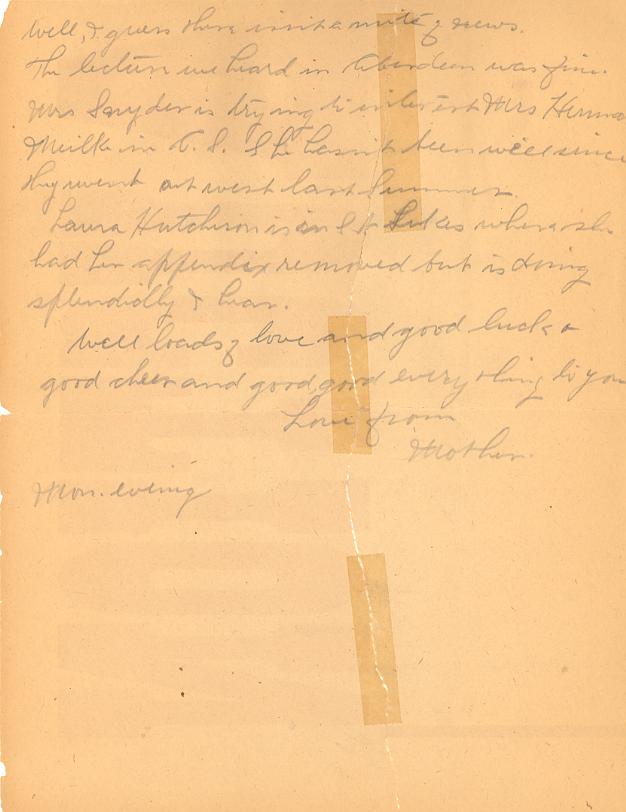 Well, I guess there isn't a mite of news.
The lecture we heard in Aberdeen was fine.
Mrs Snyder is trying to interest Mrs Herma
Meilke in C. S. She hasn't been well since
they went out west last Summer.
Laura Hutchison is in St Lukes where she
had her appendix removed but is doing
splendidly I hear.
Well loads of love and good luck &
good cheer and good good every thing to you
Love from
Mother.
Mon. evening